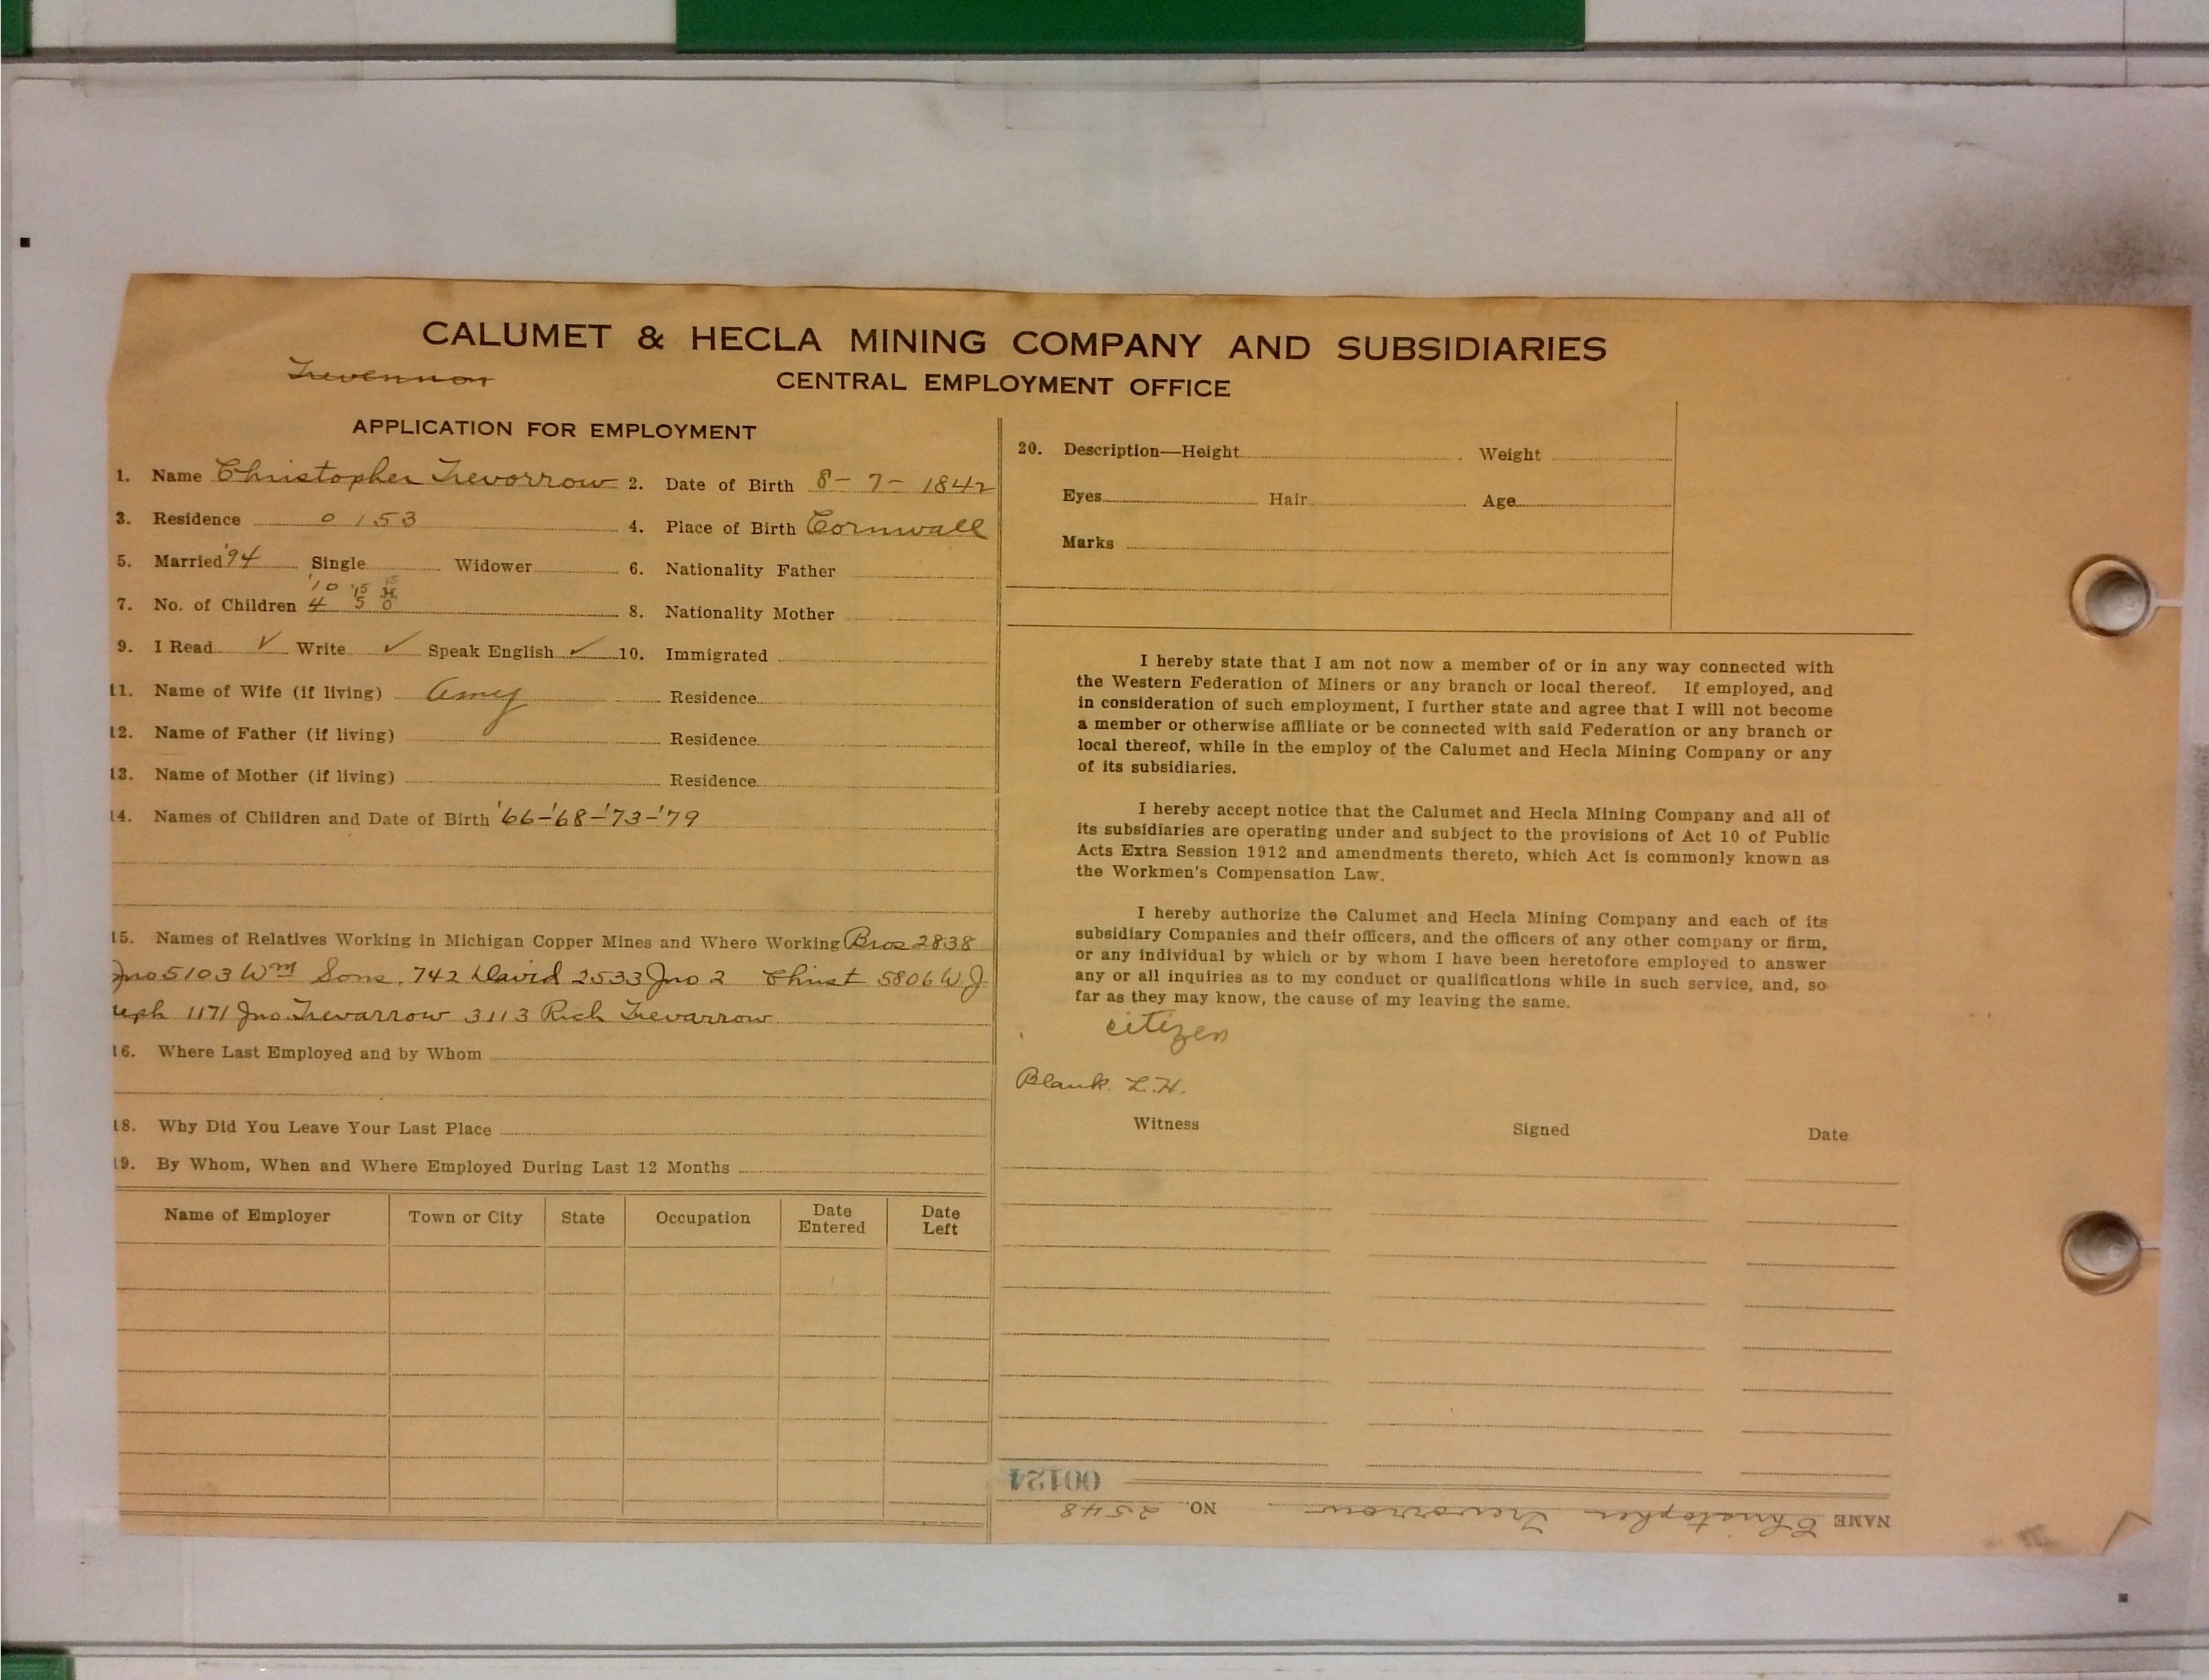 CALUMET & HECLA MINING COMPANY AND SUBSIDIARIES
Trevennon
CENTRAL EMPLOYMENT OFFICE
APPLICATION FOR EMPLOYMENT
1. Name Christopher Trevorrow 2. Date of Birth 8-7-1842
3. Residence 0153 4. Place of Birth Cornwall
5. Married '94 Single Widower 6. Nationality Father
'10 '15 15
7. No. of Children 4 5 0 8. Nationality Mother
9. I Read ✓ Write ✓ Speak English ✓ 10. Immigrated
11. Name of Wife (if living) Amy Residence
12. Name of Father (if living) Residence
13. Name of Mother (if living) Residence
14. Names of Children and Date of Birth '66-'68-'73-'79
15. Names of Relatives Working in Michigan Copper Mines and Where Working Bros 2838
Jno 5103 Wm Sons. 742 David 2533 Jno 2 Christ 5806 W. J.
neph 1171 Jno. Trevarrow 3113 Rich Trevarrow
16. Where Last Employed and by Whom
18. Why Did You Leave Your Last Place
19. By Whom, When and Where Employed During Last 12 Months
Name of Employer Town or City State Occupation Date Entered Date Left
20. Description—Height Weight
Eyes Hair Age
Marks
I hereby state that I am not now a member of or in any way connected with
the Western Federation of Miners or any branch or local thereof. If employed, and
in consideration of such employment, I further state and agree that I will not become
a member or otherwise affiliate or be connected with said Federation or any branch or
local thereof, while in the employ of the Calumet and Hecla Mining Company or any
of its subsidiaries.
I hereby accept notice that the Calumet and Hecla Mining Company and all of
its subsidiaries are operating under and subject to the provisions of Act 10 of Public
Acts Extra Session 1912 and amendments thereto, which Act is commonly known as
the Workmen's Compensation Law.
I hereby authorize the Calumet and Hecla Mining Company and each of its
subsidiary Companies and their officers, and the officers of any other company or firm,
or any individual by which or by whom I have been heretofore employed to answer
any or all inquiries as to my conduct or qualifications while in such service, and, so
far as they may know, the cause of my leaving the same.
citizen
Blank. L.H.
Witness Signed Date
00124
NAME Christopher Trevorrow NO. 2548